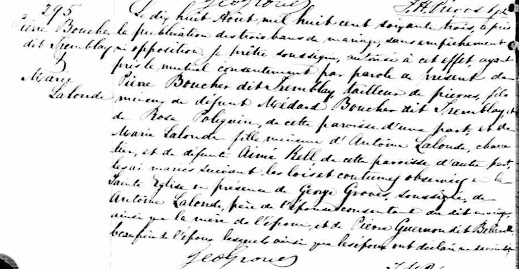 Geo Groves
295
Le dix huit Août, mil huit cent soixante trois, après
Pierre Boucher la publication des trois bans de mariage, sans empêchement
dit Tremblay ni opposition, je prêtre soussigné, autorisé à cet effet, ayant
& pris le mutuel consentement par parole de présent de
Marie Pierre Boucher dit Tremblay, tailleur de pierres, fils
Lalonde mineur de défunt Médard Boucher dit Tremblay, et
de Rose Poliquin, de cette paroisse d'une part, et de
Marie Lalonde fille mineure d'Antoine Lalonde, charre
tier, et de défunte Aimé Kell, de cette paroisse d'autre part,
les ai mariés suivant les lois et coutumes observées en la
Sainte Eglise en présence de George Groves, soussigné, de
Antoine Lalonde, père de l'épouse consentant au dit mariage,
ainsi que la mère de l'époux, et de Pierre Guernon dit
beau frère de l'époux lesquels ainsi que les époux ont déclaré ne savoir signer
Geo Groves